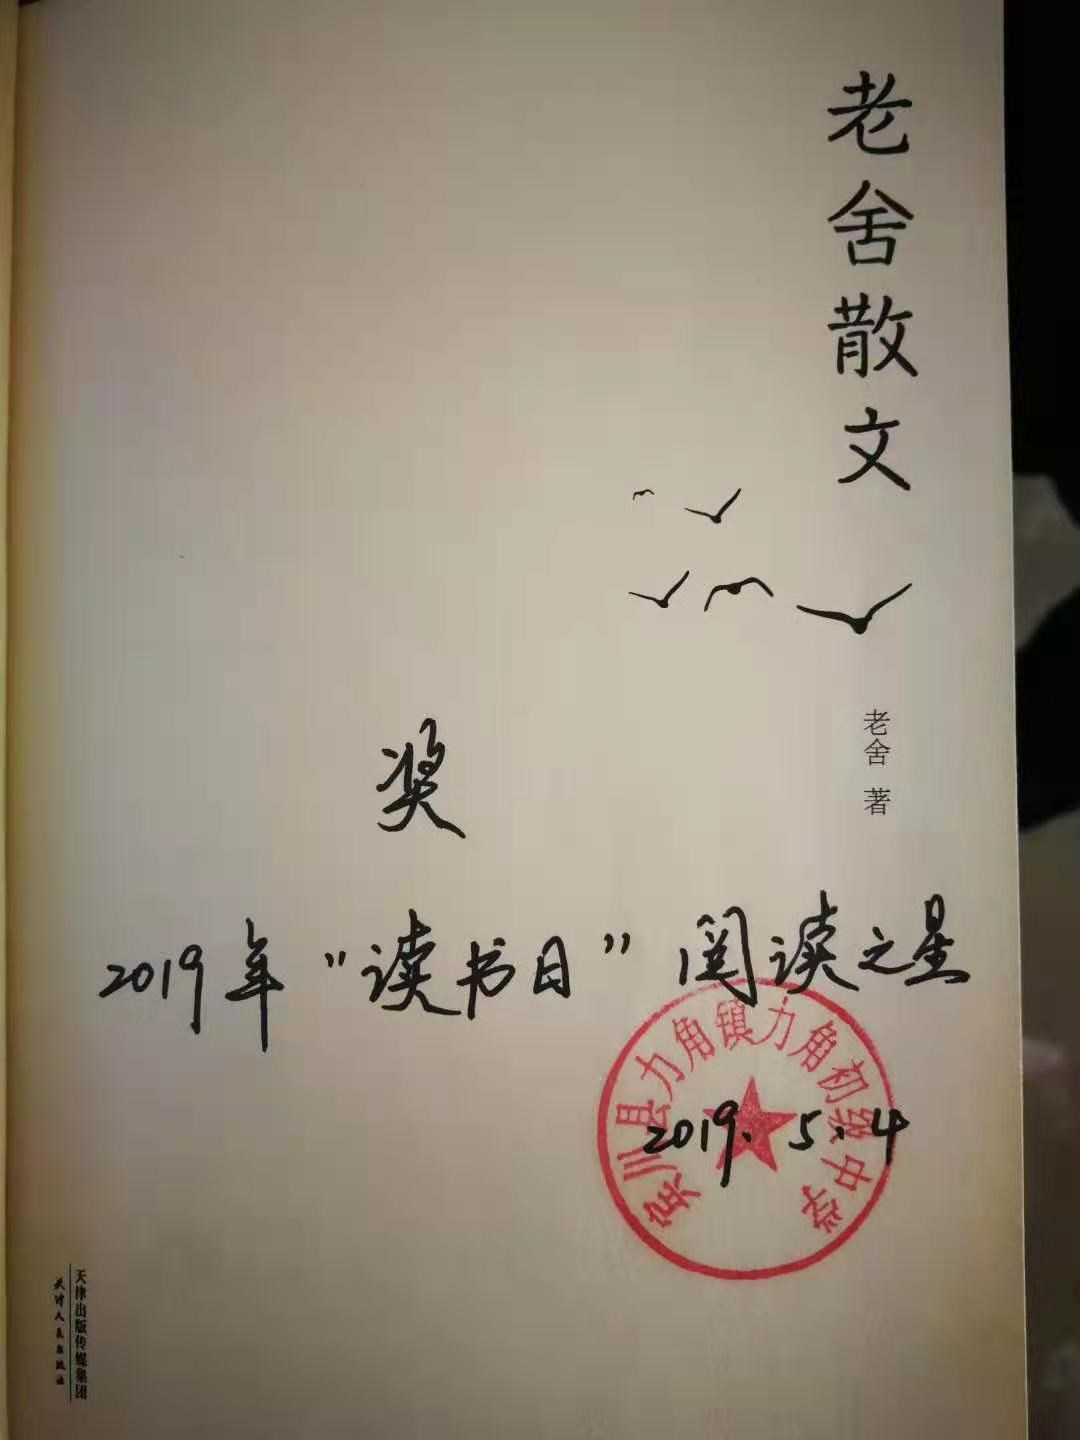 老舍散文
老舍 著
奖
2019年“读书日”阅读之星
宾川县力角镇力角初级中学
2019.5.4
天津出版传媒集团
天津人民出版社